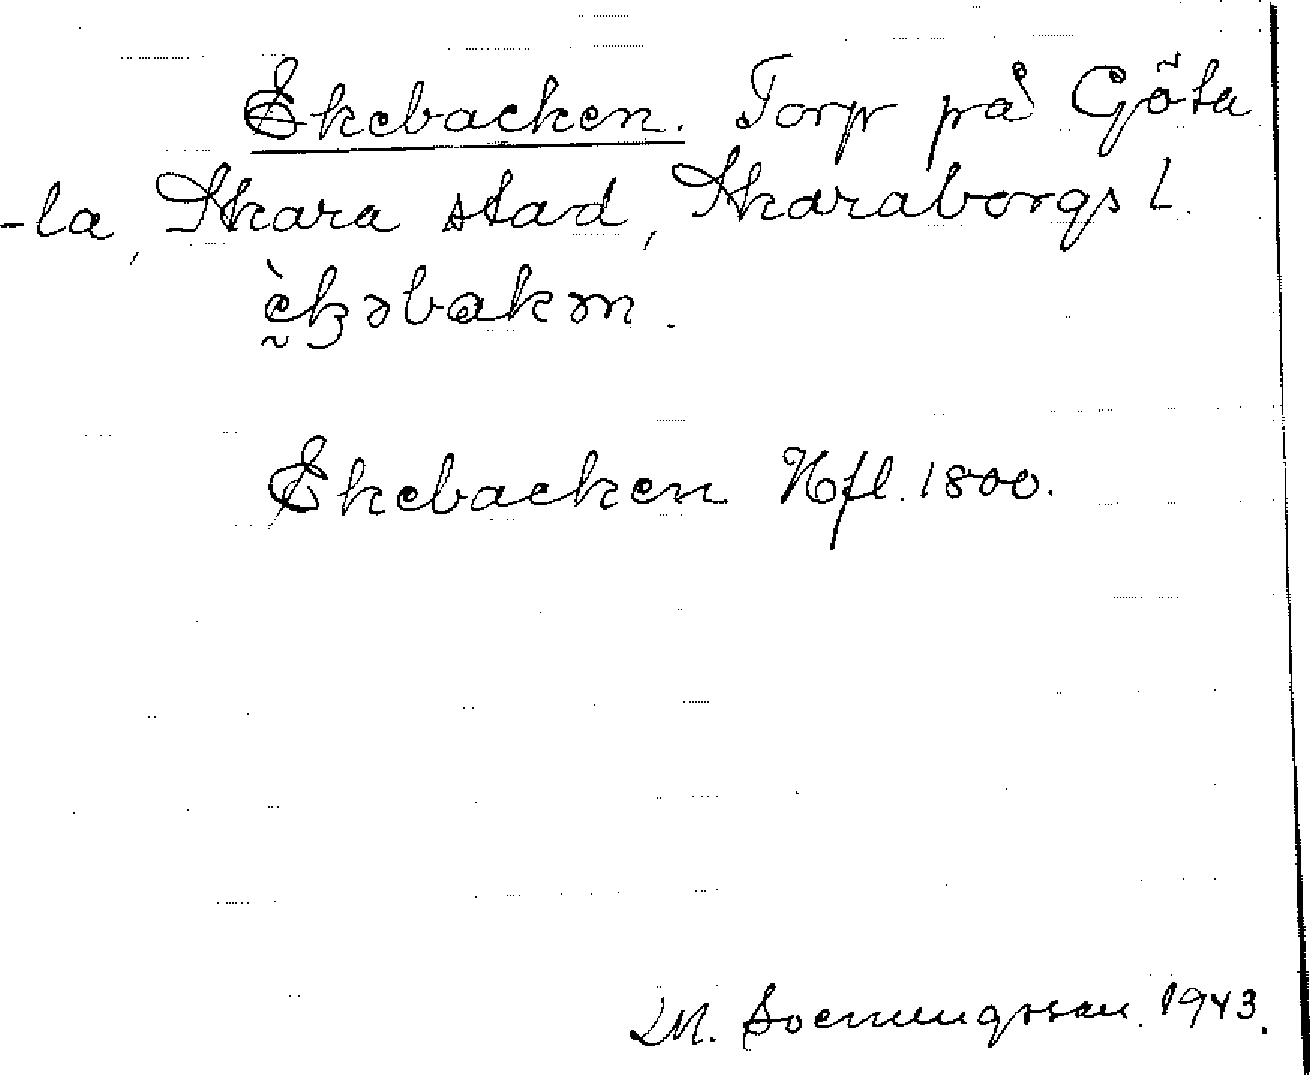 Ekebacken. Torp på Göta
-la, Skara stad, Skaraborgs l.
ḛ̀kəbakən.
Ekebacken Hfl. 1800.
M. 1943.